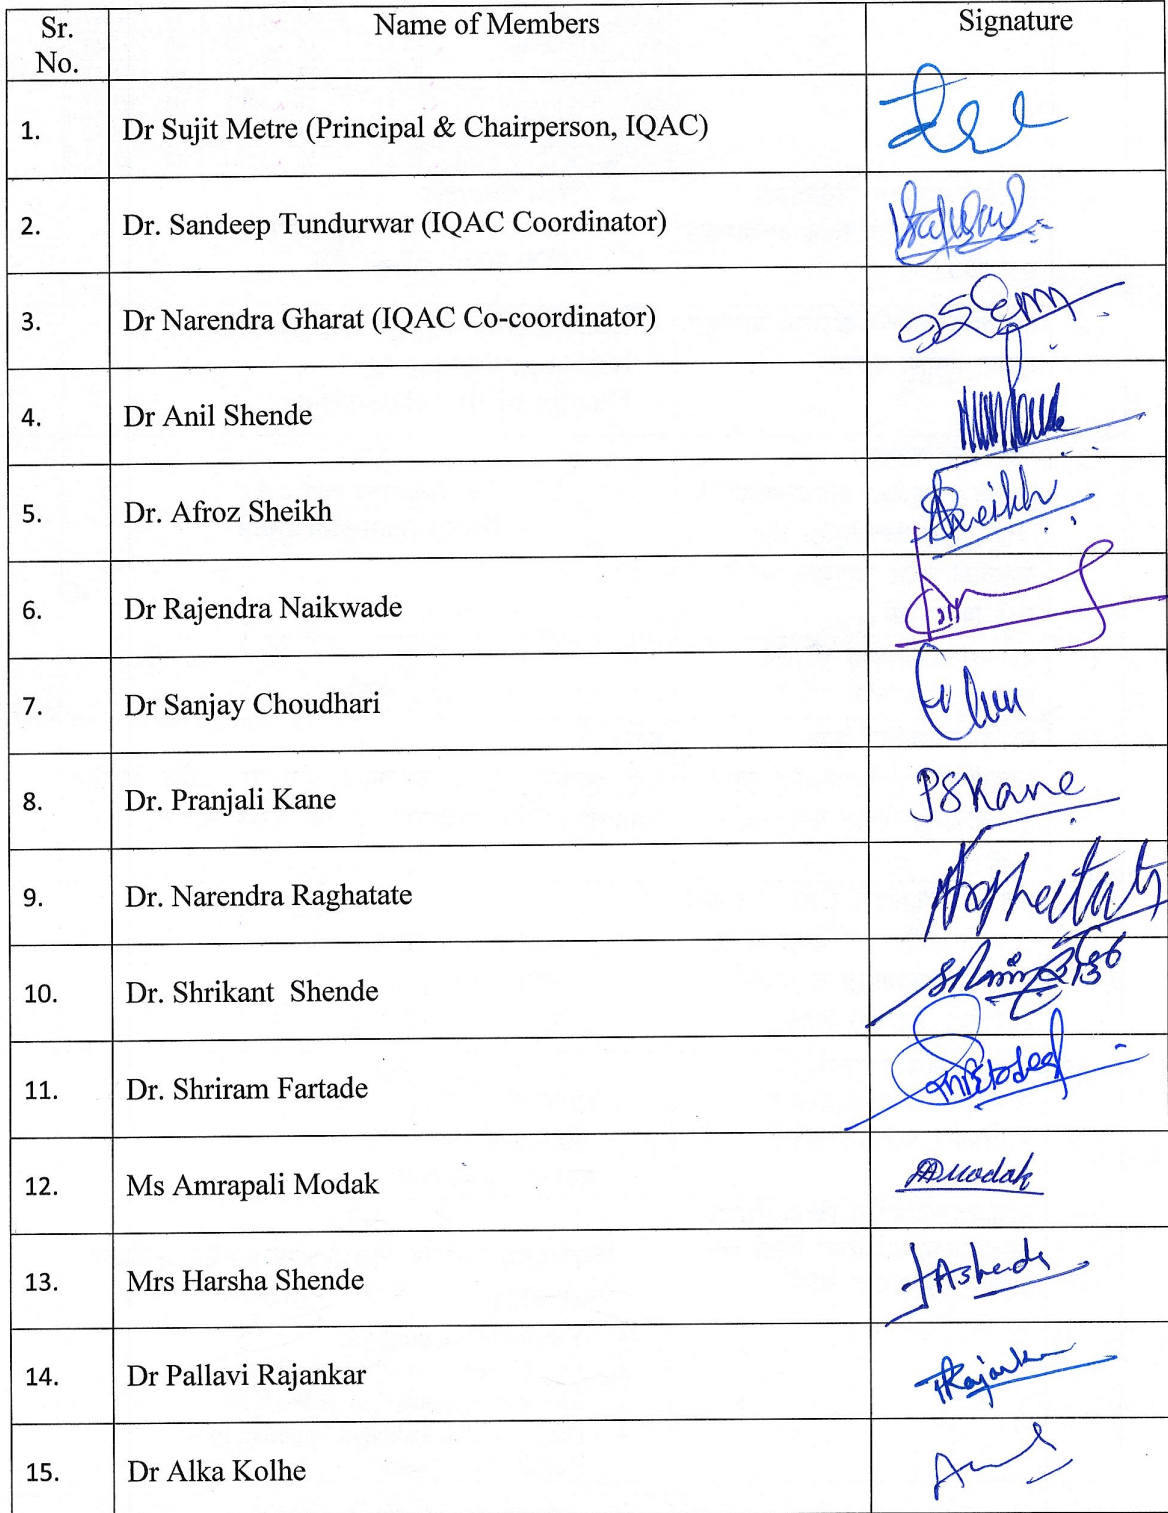 Sr. No. Name of Members Signature
1. Dr Sujit Metre (Principal & Chairperson, IQAC)
2. Dr. Sandeep Tundurwar (IQAC Coordinator)
3. Dr Narendra Gharat (IQAC Co-coordinator)
4. Dr Anil Shende
5. Dr. Afroz Sheikh Sheikh
6. Dr Rajendra Naikwade
7. Dr Sanjay Choudhari
8. Dr. Pranjali Kane PSKane
9. Dr. Narendra Raghatate
10. Dr. Shrikant Shende
11. Dr. Shriram Fartade
12. Ms Amrapali Modak AAModak
13. Mrs Harsha Shende
14. Dr Pallavi Rajankar
15. Dr Alka Kolhe